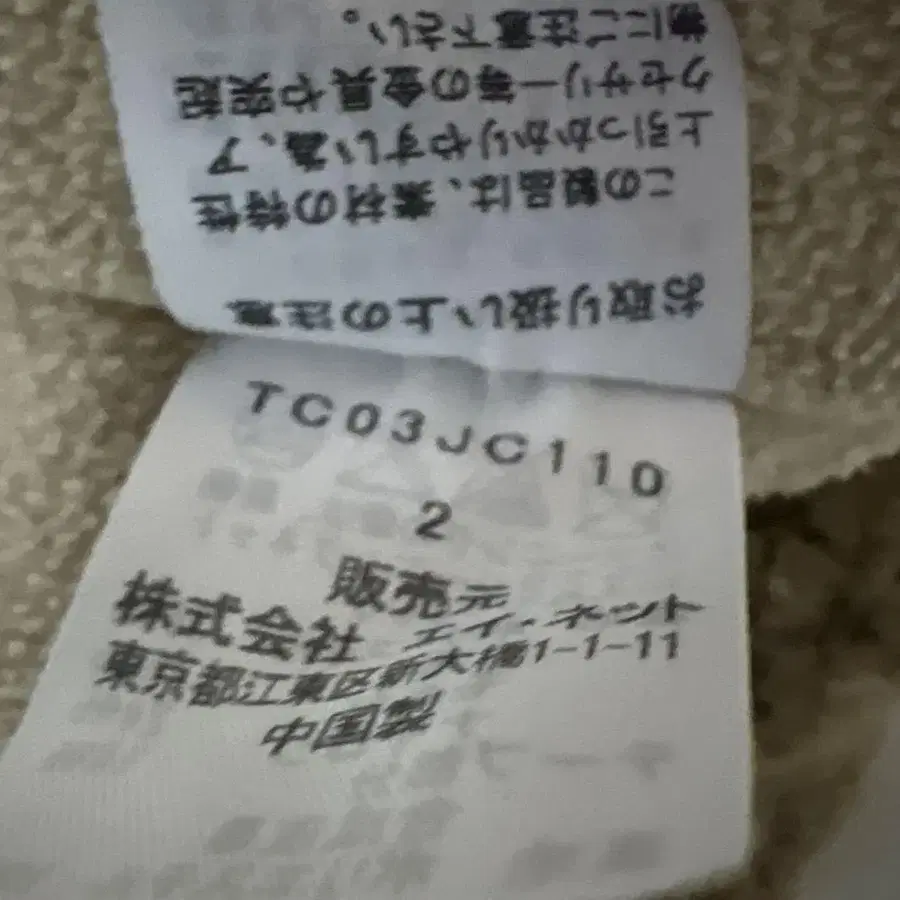 お取り扱い上の注意
この製品は、素材の特性
上引っかかりやすい為、ア
クセサリー等の金具や突起
物にご注意下さい。
TC03JC110
2
販売元
株式会社 エイ・ネット
東京都江東区新大橋1-1-11
中国製